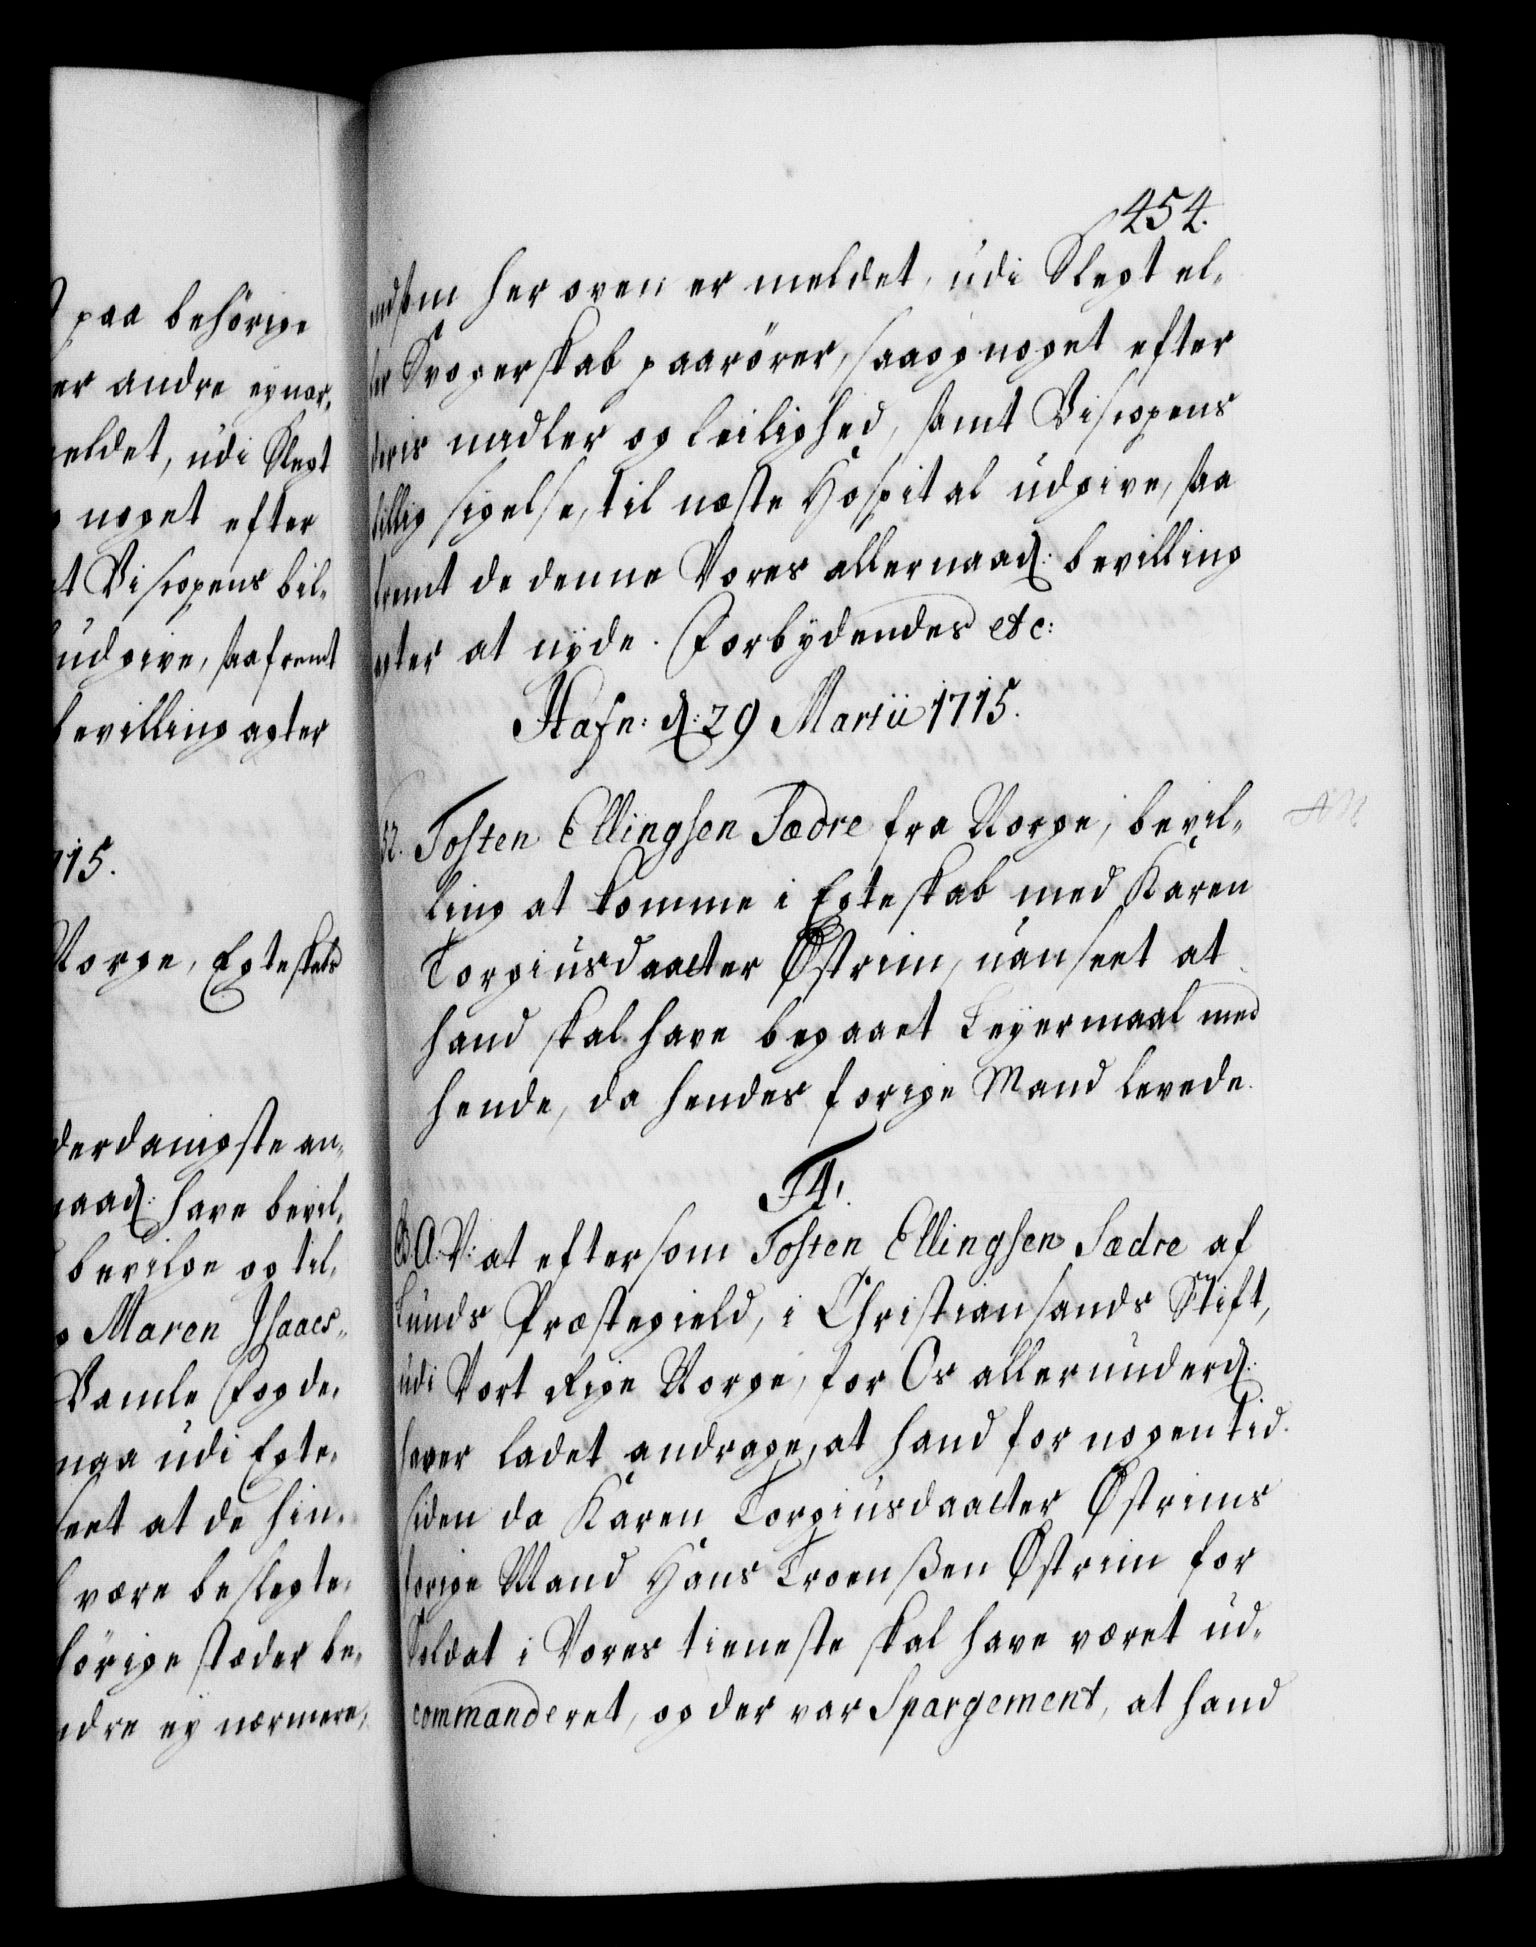 paa behörige
er andre ey nær¬
meldet, udi Slegt
noget efter
t Biscopens bil¬
udgive, saafremt
bevilling agter
715.
Norge, Egteskab
derdanigste an¬
naad: have bevil¬
bevilge og til¬
Maren Isaacs¬
Bamle Fogde¬
maa udi Egte¬
seet at de hin¬
være beslegte¬
hörige stæder be¬
ndre ey nærmere¬
454.
endsom her oven er meldet, udi Slegt el¬
ler Svogerskab paarörer, saa og noget efter
deris midler og leilighed, samt Biscopens
billig sigelse, til næste Hospital udgive, saa
fremt de denne Vores allernaad: bevilling
agter at nyde. Forbydendes etc:
Hafn: d: 29 Martii 1715.
52. Tosten Ellingsen Sædre fra Norge, bevil¬
ling at komme i Egteskab med Karen
Torgiusdaatter Østrim, uanseet at
hand skal have begaaet Leyermaal med
hende, da hendes forige Mand levede.
F4.
G. A: V: at eftersom Tosten Ellingsen Sædre af
Lunds Præstegield, i Christiansands Stift,
udi Vort Rige Norge, for Os allerunderd:
haver ladet andrage, at hand for nogen tid
siden da Karen Torgiusdaatter Østrims
forige Mand Hans Troenßen Østrim for
Soldat i Vores tieneste skal have været ud¬
commanderet, og der var Spargement, at hand